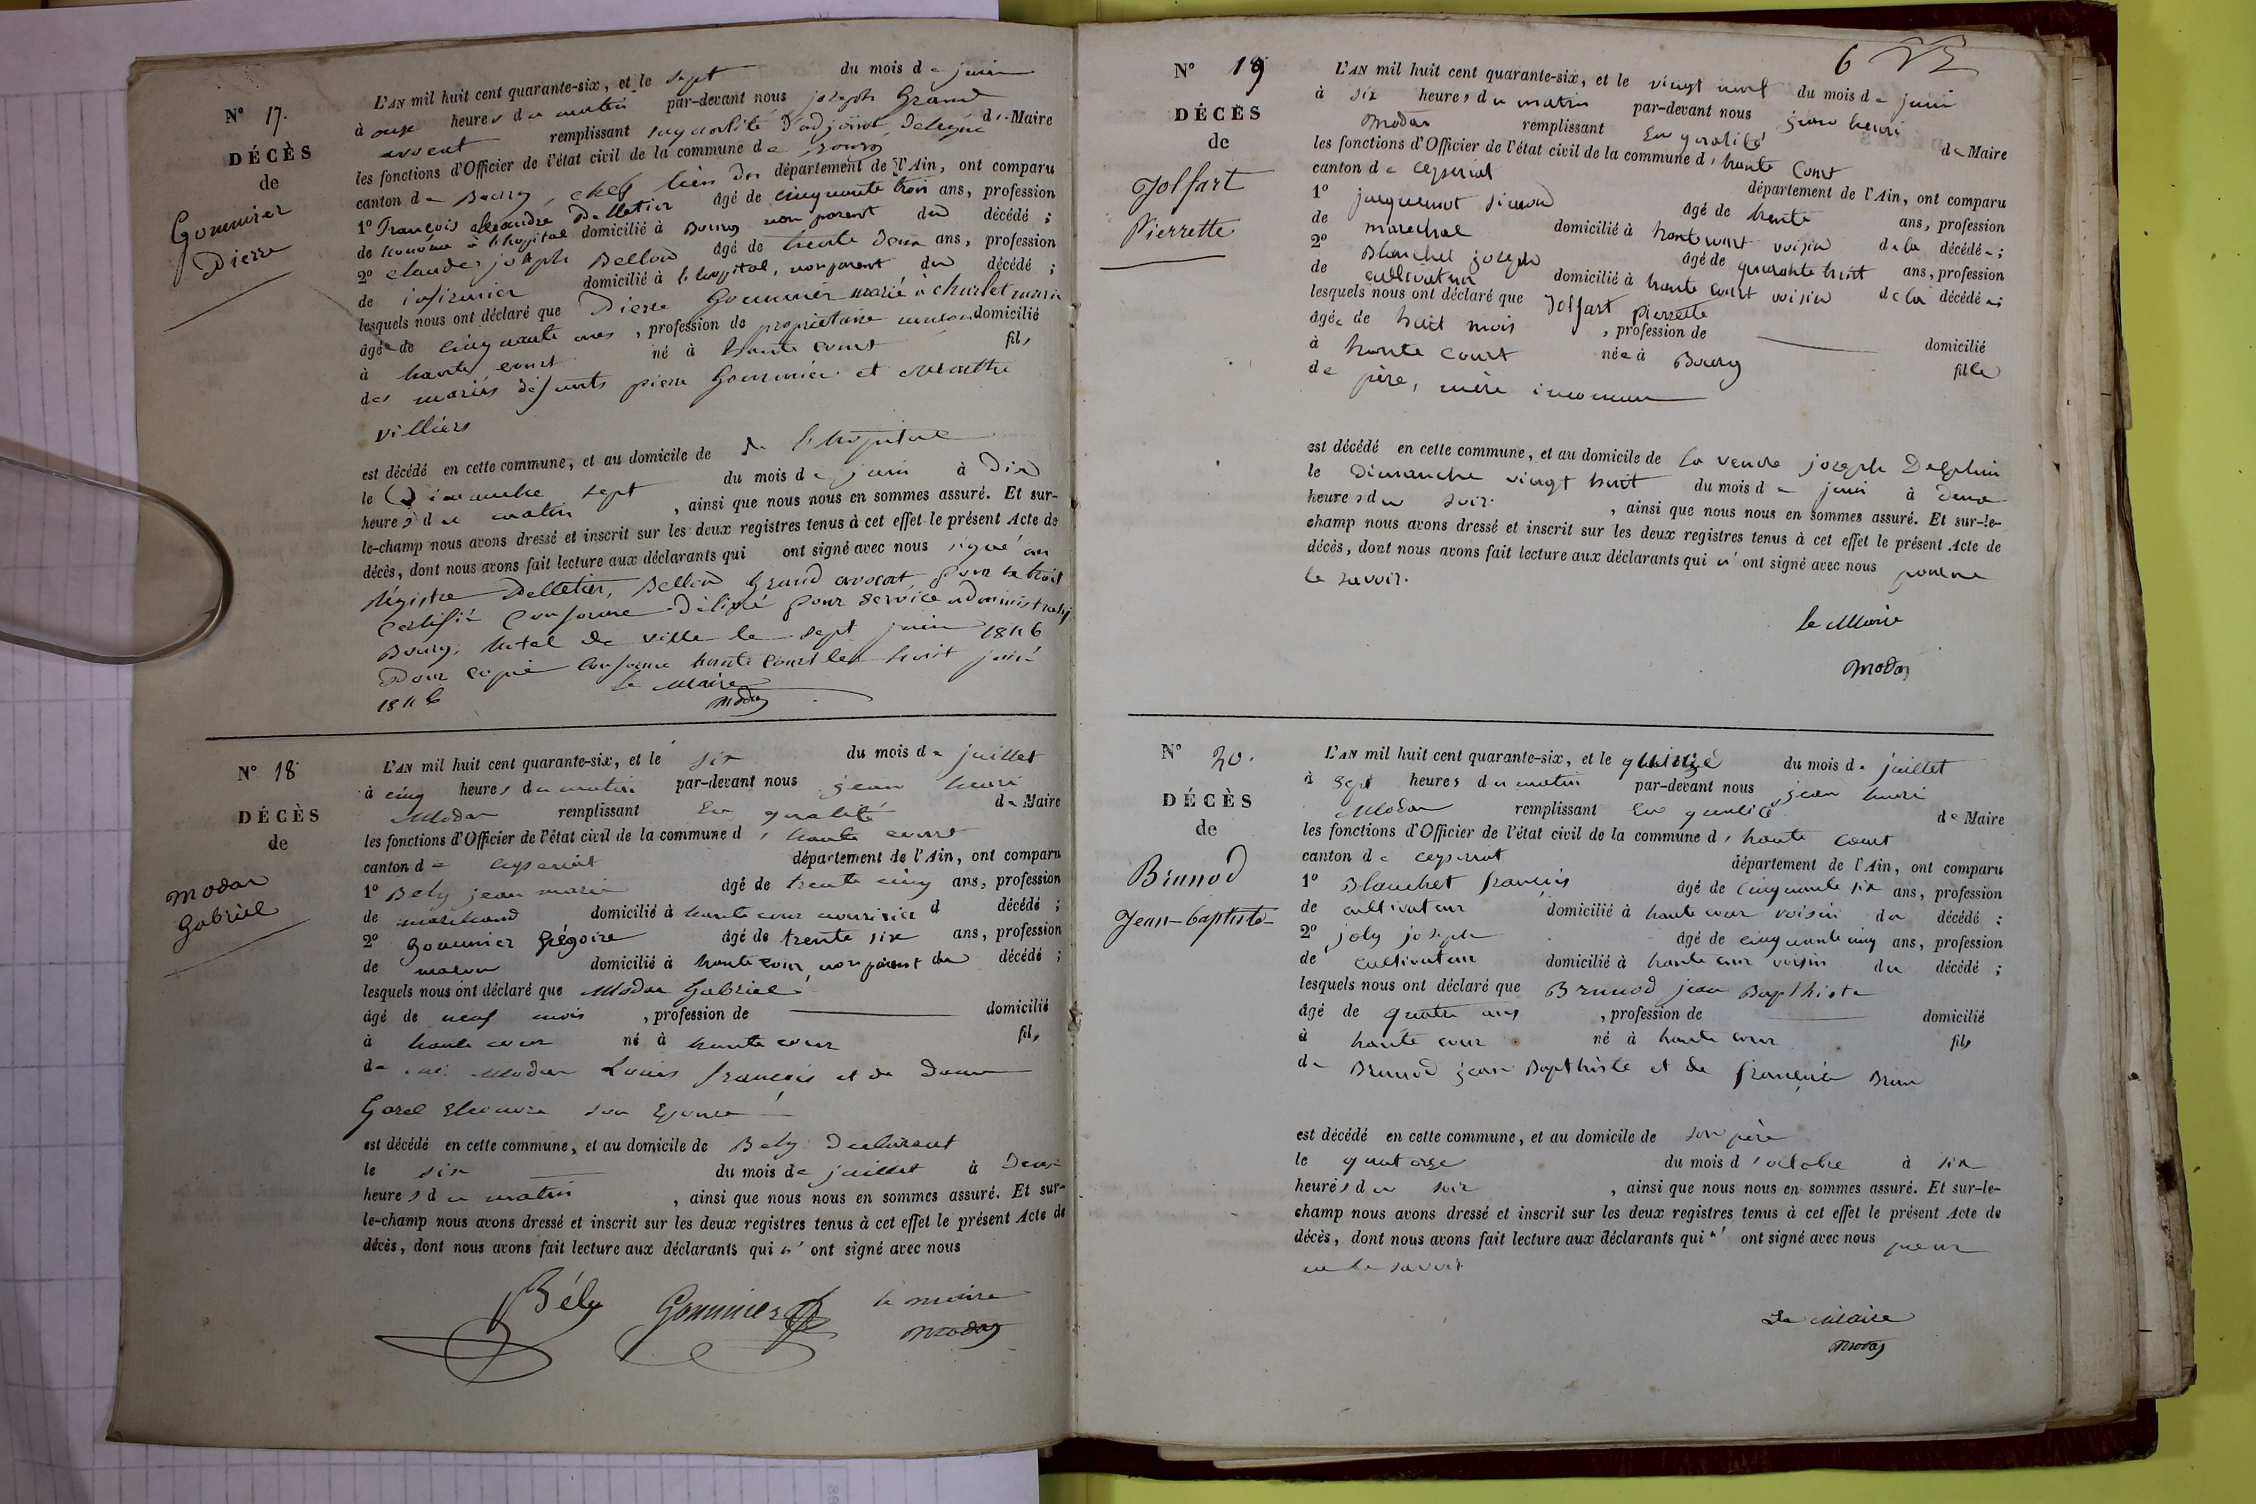 N° 17.
DÉCÈS
de
Gommier
Pierre
L'AN mil huit cent quarante-six, et le sept du mois de juin
à onze heures du matin par-devant nous joseph Grand
avocat remplissant sa qualité d'adjoint délégué de Maire
les fonctions d'Officier de l'état civil de la commune de Bourg
canton de Bourg, chef lieu du département de l'Ain, ont comparu
1° François alexandre Pelletier âgé de cinquante trois ans, profession
de économe à l'hopital domicilié à Bourg non parent du décédé ;
2° claude joseph Bellod âgé de trente deux ans, profession
de infirmier domicilié à l'hopital, non parent du décédé ;
lesquels nous ont déclaré que Pierre Gommier marié à charlet marie
âgé de cinquante ans, profession de propriétaire domicilié
à haute court né à haute court fils
des mariés défunts pierre Gommier et
villiers
est décédé en cette commune, et au domicile de de l'hôpital
le Dimanche sept du mois de juin à Dix
heures du matin, ainsi que nous nous en sommes assuré. Et sur-
le-champ nous avons dressé et inscrit sur les deux registres tenus à cet effet le présent Acte de
décès, dont nous avons fait lecture aux déclarants qui ont signé avec nous signé au
Régistre Pelletier, Bellod Grand avocat, pour extrait
Certifié Conforme Délivré pour service administratif
Bourg, hotel de ville le sept juin 1846
Pour copie Conforme haute court le huit juin
1846 le Maire
Modas
N° 18
DÉCÈS
de
Modas
Gabriel
L'AN mil huit cent quarante-six, et le six du mois de juillet
à cinq heures du matin par-devant nous jean henri
Modas remplissant En qualité de Maire
les fonctions d'Officier de l'état civil de la commune d'haute court
canton de ceyseriat département de l'Ain, ont comparu
1° Bely jean marie âgé de trente cinq ans, profession
de marchand domicilié à haute cour d décédé ;
2° Gommier Grégoire âgé de trente six ans, profession
de maçon domicilié à haute cour, non parent du décédé ;
lesquels nous ont déclaré que Modas Gabriel
âgé de neuf mois, profession de domicilié
à haute cour né à haute cour fils
de Modas Louis françois et de Dame
Gorel Eleonore son Epouse
est décédé en cette commune, et au domicile de Bely Déclarant
le six du mois de juillet à Deux
heures du matin, ainsi que nous nous en sommes assuré. Et sur-
le-champ nous avons dressé et inscrit sur les deux registres tenus à cet effet le présent Acte de
décès, dont nous avons fait lecture aux déclarants qui n' ont signé avec nous
Bély Gommier le maire
Modas
6
N° 19
DÉCÈS
de
Jolfart
Pierrette
L'AN mil huit cent quarante-six, et le vingt neuf du mois de juin
à six heures du matin par-devant nous jean henri
Modas remplissant En qualité de Maire
les fonctions d'Officier de l'état civil de la commune d'haute Court
canton de ceyseriat département de l'Ain, ont comparu
1° jacquemot simon âgé de trente ans, profession
de marechal domicilié à haute court voisin de la décédée ;
2° Blanchet joseph âgé de quarante huit ans, profession
de cultivateur domicilié à haute court voisin de la décédée ;
lesquels nous ont déclaré que Jolfart pierrette
âgée de huit mois, profession de domicilié
à haute court née à Bourg fille
de père, mère inconnus
est décédé en cette commune, et au domicile de la veuve joseph Delphin
le Dimanche vingt huit du mois de juin à Deux
heures du soir, ainsi que nous nous en sommes assuré. Et sur-le-
champ nous avons dressé et inscrit sur les deux registres tenus à cet effet le présent Acte de
décès, dont nous avons fait lecture aux déclarants qui n' ont signé avec nous pour ne
le savoir.
le Maire
Modas
N° 20.
DÉCÈS
de
Brunod
Jean-baptiste
L'AN mil huit cent quarante-six, et le quinze du mois de juillet
à sept heures du matin par-devant nous jean henri
Modas remplissant En qualité de Maire
les fonctions d'Officier de l'état civil de la commune d'haute court
canton de ceyseriat département de l'Ain, ont comparu
1° Blanchet françois âgé de cinquante six ans, profession
de cultivateur domicilié à haute cour voisin du décédé ;
2° joly joseph âgé de cinquante cinq ans, profession
de cultivateur domicilié à haute cour voisin du décédé ;
lesquels nous ont déclaré que Brunod jean Bapthiste
âgé de quatre ans, profession de domicilié
à haute cour né à haute cour fils
de Brunod jean Bapthiste et de françoise Brun
est décédé en cette commune, et au domicile de son père
le quatorze du mois d'octobre à six
heures du soir, ainsi que nous nous en sommes assuré. Et sur-le-
champ nous avons dressé et inscrit sur les deux registres tenus à cet effet le présent Acte de
décès, dont nous avons fait lecture aux déclarants qui n' ont signé avec nous pour
ne le savoir
Le Maire
Modas